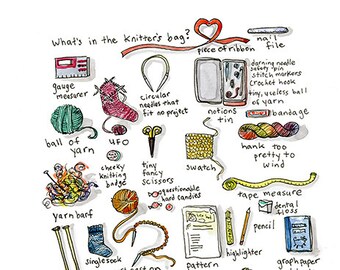 What's in the knitter's bag?
piece of ribbon
nail
file
gauge
measurer
circular
needles that
fit no project
notions
tin
darning needle
safety pin
stitch markers
crochet hook
tiny, useless ball
of yarn
bandage
ball of
yarn
UFO
tiny
fancy
scissors
swatch
hank too
pretty to
wind
cheeky
knitting
badge
questionable
hard candies
tape measure
yarn barf
dental
floss
pencil
highlighter
pen
single sock
pattern
graph paper